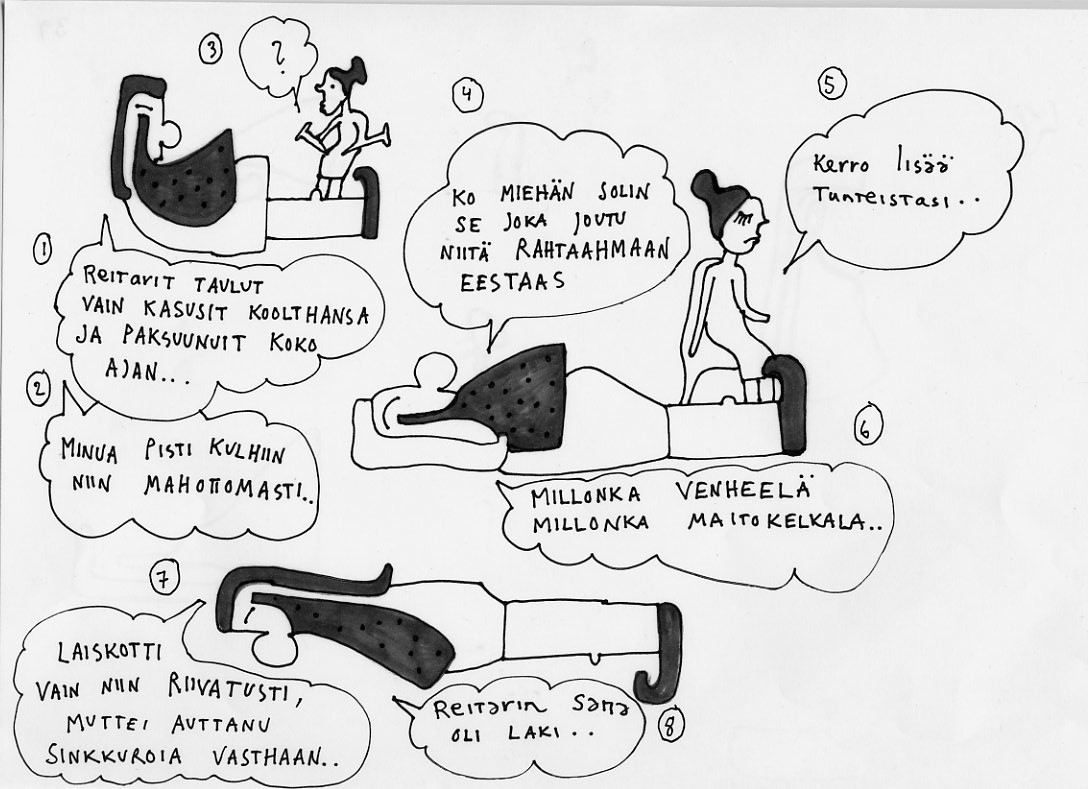 1
Reitarit taulut
vain kasusit koolthansa
ja paksuunuit koko
ajan...
2
Minua pisti kulhiin
niin mahottomasti..
3
?
4
Ko miehän solin
se joka joutu
niitä rahtaahmaan
eestaas
5
Kerro lisää
tunteistasi..
6
Millonka venheelä
millonka maitokelkala..
7
Laiskotti
vain niin riivatusti,
muttei auttanu
sinkkuroia vasthaan..
8
Reitarin sana
oli laki..